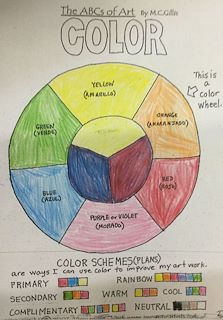 The ABCs of Art By M.C.Gillis
COLOR
This is
a color
wheel.
YELLOW
(AMARILLO)
ORANGE
(ANARANJADO)
GREEN
(VERDE)
BLUE
(AZUL)
RED
(ROJO)
PURPLE or VIOLET
(MORADO)
COLOR SCHEMES(PLANS)
are ways I can use color to improve my art work.
PRIMARY RAINBOW
SECONDARY WARM COOL
COMPLIMENTARY NEUTRAL